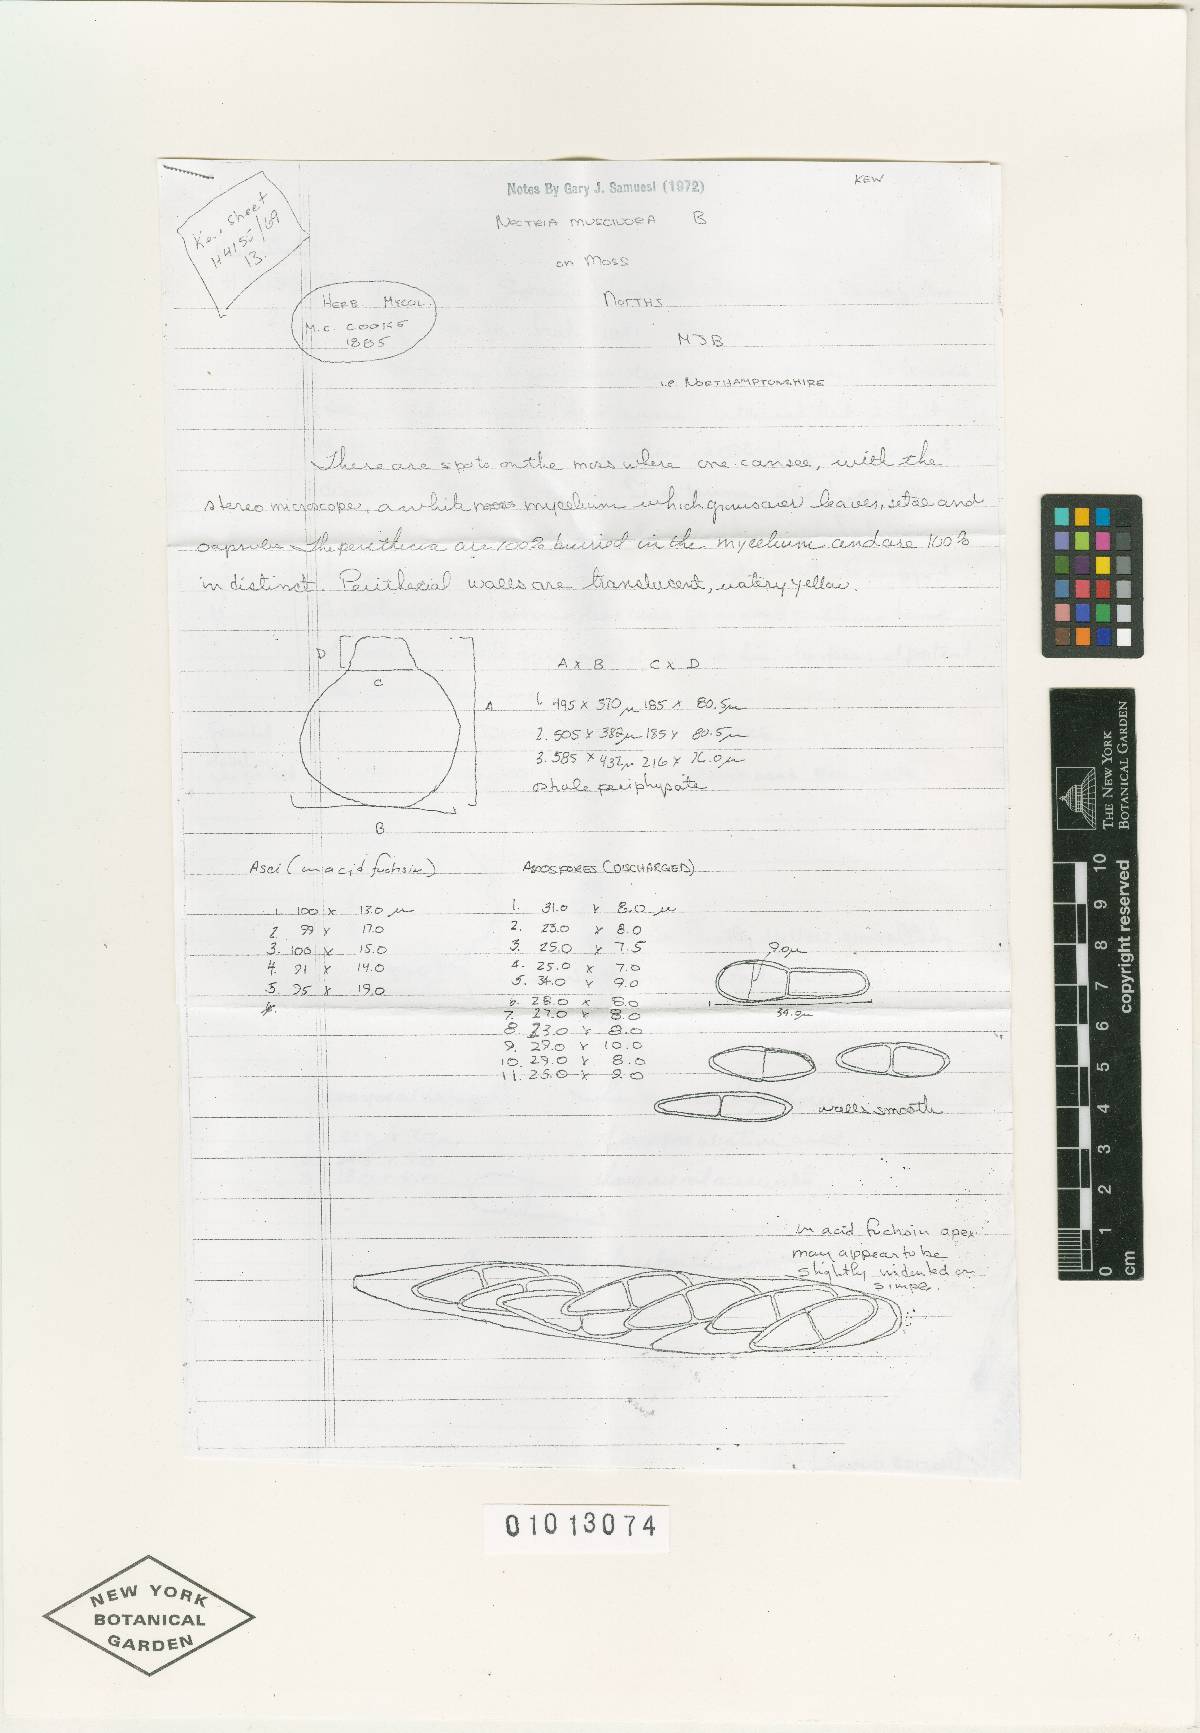 Notes By Gary J. Samuesl (1972)
KEW
Kew Sheet
H4155/69
13.
NECTRIA MUSCIVORA B
on Moss
HERB MYCOL.
M.C. COOKE
1885
NORTHS
MJB
i.e. NORTHAMPTONSHIRE
There are spots on the moss where one can see, with the
stereo microscope, a white mycelium which grows over leaves, setae and
capsules. The perithecia are 100% buried in the mycelium and are 100%
in distinct. Perithecial walls are translucent, watery yellow.
D
C
A
B
A x B C x D
1. 495 x 370 µ 185 x 80.5µ
2. 505 x 382µ 185 x 80.5µ
3. 585 x 432µ 216 x 76.0µ
ostiole periphysate
Asci (in acid fuchsin)
1. 100 x 13.0 µ
2. 99 x 17.0
3. 100 x 15.0
4. 91 x 14.0
5. 95 x 19.0
ASCOSPORES (DISCHARGED)
1. 31.0 x 8.0 µ
2. 23.0 x 8.0
3. 25.0 x 7.5
4. 25.0 x 7.0
5. 34.0 x 9.0
6. 28.0 x 8.0
7. 27.0 x 8.0
8. 23.0 x 8.0
9. 29.0 x 10.0
10. 29.0 x 8.0
11. 25.0 x 9.0
9.0µ
34.0µ
walls smooth
in acid fuchsin apex
may appear to be
slightly indented or
simple.
01013074
NEW YORK
BOTANICAL
GARDEN
THE NEW YORK
BOTANICAL GARDEN
copyright reserved
0 1 2 3 4 5 6 7 8 9 10
cm